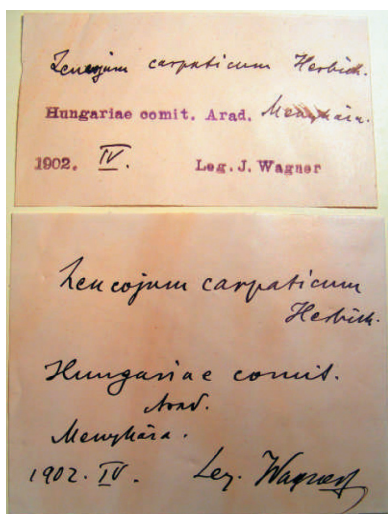 Leucojum carpaticum Herbich.
Hungariae comit. Arad. Menyháza.
1902. IV. Leg. J. Wagner
Leucojum carpaticum
Herbich.
Hungariae comit.
Arad.
Menyháza.
1902. IV. Leg. Wagner